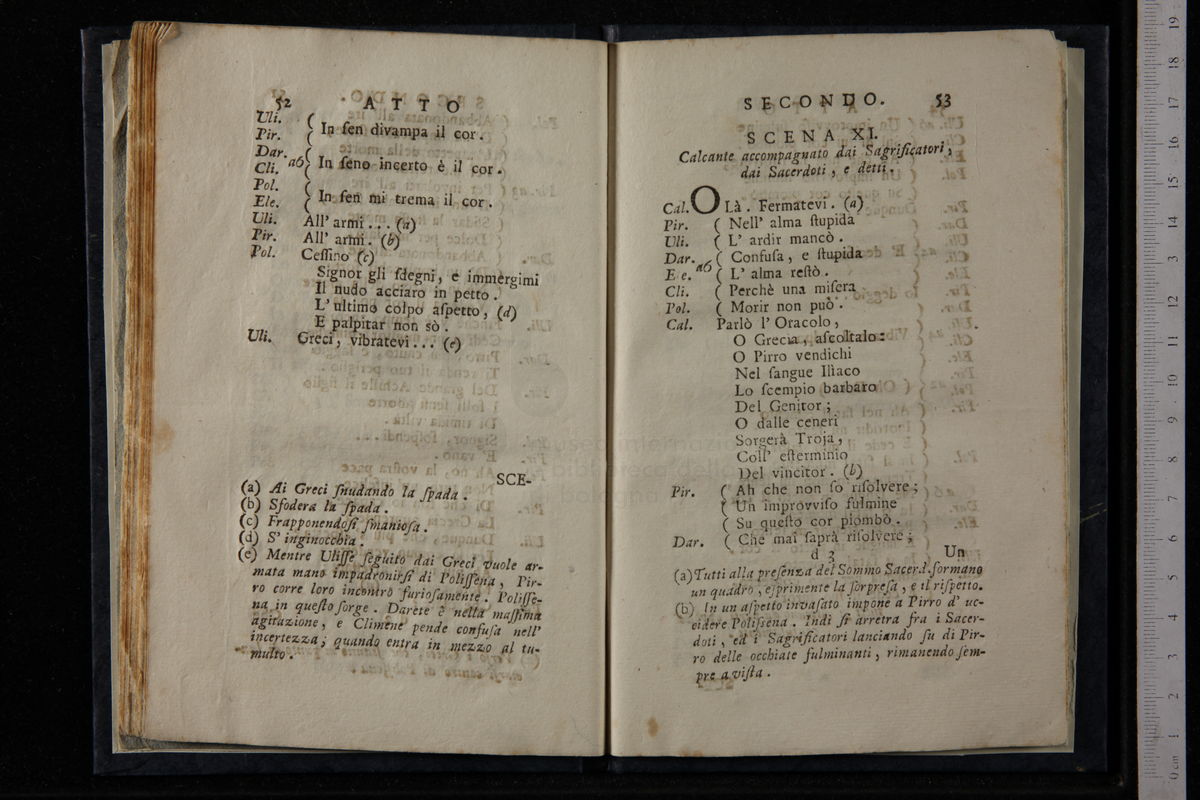 52 ATTO
Uli. (
Pir. ( In ſen divampa il cor.
Dar. (
Cli. a6 ( In ſeno incerto è il cor.
Pol. (
Ele. ( In ſen mi trema il cor.
Uli. All' armi... (a)
Pir. All' armi. (b)
Pol. Ceſſino (c)
Signor gli ſdegni, e immergimi
Il nudo acciaro in petto.
L' ultimo colpo aſpetto, (d)
E palpitar non sò.
Uli. Greci, vibratevi... (e)
SCE-
(a) Ai Greci ſnudando la ſpada.
(b) Sfodera la ſpada.
(c) Frapponendoſi ſmanioſa.
(d) S' inginocchia.
(e) Mentre Uliſſe ſeguito dai Greci vuole ar-
mata mano impadronirſi di Poliſſena, Pir-
ro corre loro incontro furioſamente. Poliſſe-
na in queſto ſorge. Darete è nella maſſima
agitazione, e Climene pende confuſa nell'
incertezza; quando entra in mezzo al tu-
multo.
SECONDO. 53
SCENA XI.
Calcante accompagnato dai Sagrificatori,
dai Sacerdoti, e detti.
Cal. OLà. Fermatevi. (a)
Pir. ( Nell' alma ſtupida
Uli. ( L' ardir mancò.
Dar. ( Confuſa, e ſtupida
E e. a6 ( L' alma reſtò.
Cli. ( Perchè una miſera
Pol. ( Morir non può.
Cal. Parlò l' Oracolo,
O Grecia, aſcoltalo:
O Pirro vendichi
Nel ſangue Iliaco
Lo ſcempio barbaro
Del Genitor;
O dalle ceneri
Sorgerà Troja,
Coll' eſterminio
Del vincitor. (b)
Pir. ( Ah che non ſo riſolvere;
( Un improvviſo fulmine
( Su queſto cor piombò.
Dar. ( Che mai ſaprà riſolvere;
d 3 Un
(a) Tutti alla preſenza del Sommo Sacerd. formano
un quadro, eſprimente la ſorpreſa, e il riſpetto.
(b) In un aſpetto invaſato impone a Pirro d' uc-
cidere Poliſſena. Indi ſi arretra fra i Sacer-
doti, ed i Sagrificatori lanciando ſu di Pir-
ro delle occhiate fulminanti, rimanendo ſem-
pre a viſta.
0 cm 1 2 3 4 5 6 7 8 9 10 11 12 13 14 15 16 17 18 19